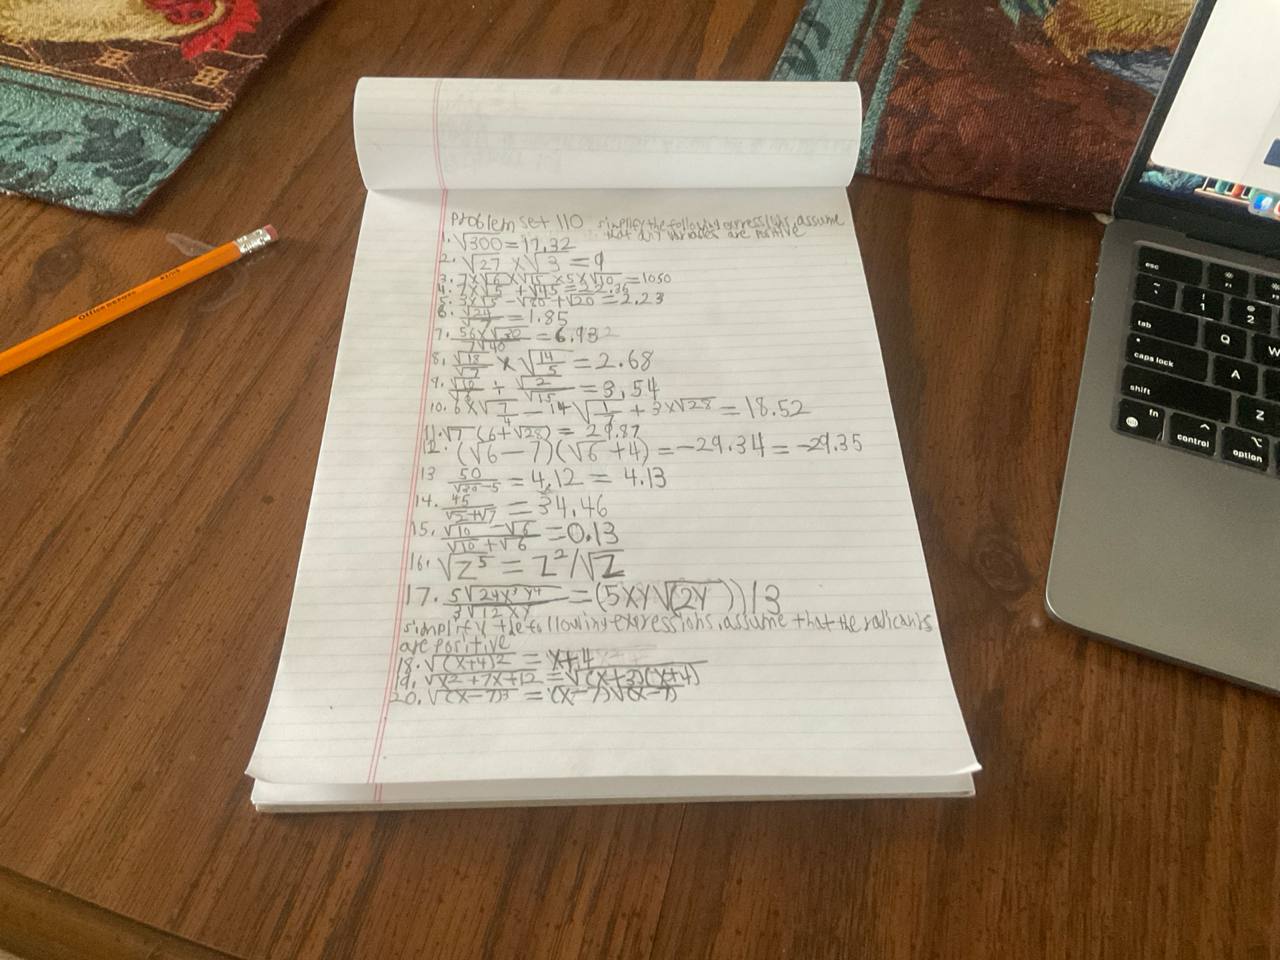 Problem set 110 simplify the following expressions, assume
that any variables are positive
1. √300 = 17.32
2. √27 × √3 = 9
3. 7×√6 × √15 × 5×√10 = 1050
+ √45 = 22.36
5. 3×√5 − √20 + √20 = 2.23
6. = 1.85
7. 56×√30 / 7√40 = 6.932
8. √18/√7 × √14/5 = 2.68
9. ÷ √2/15 = 3.54
10. 6×√7/4 − 14√1/7 + 3×√28 = 18.52
11. √7 (6+√28) = 29.87
12. (√6−7)(√6+4) = −29.34 = −29.35
13 50 = 4.12 = 4.13
14. 45 = 34.46
15. √10 − √6 / √10 + √6 = 0.13
16. √z⁵ = z²/√z
17. 5√24x³y⁴ / 3√12xy = (5xy√(2y))/3
simplify the following expressions, assume that the radicands
are positive
18. √(x+4)² = x+4
19. √x²+7x+12 = √(x+3)(x+4)
20. √(x−7)³ = (x−7)√(x−7)
Office Depot
esc
!
1
@
2
tab
Q
W
caps lock
A
shift
Z
fn
control
option